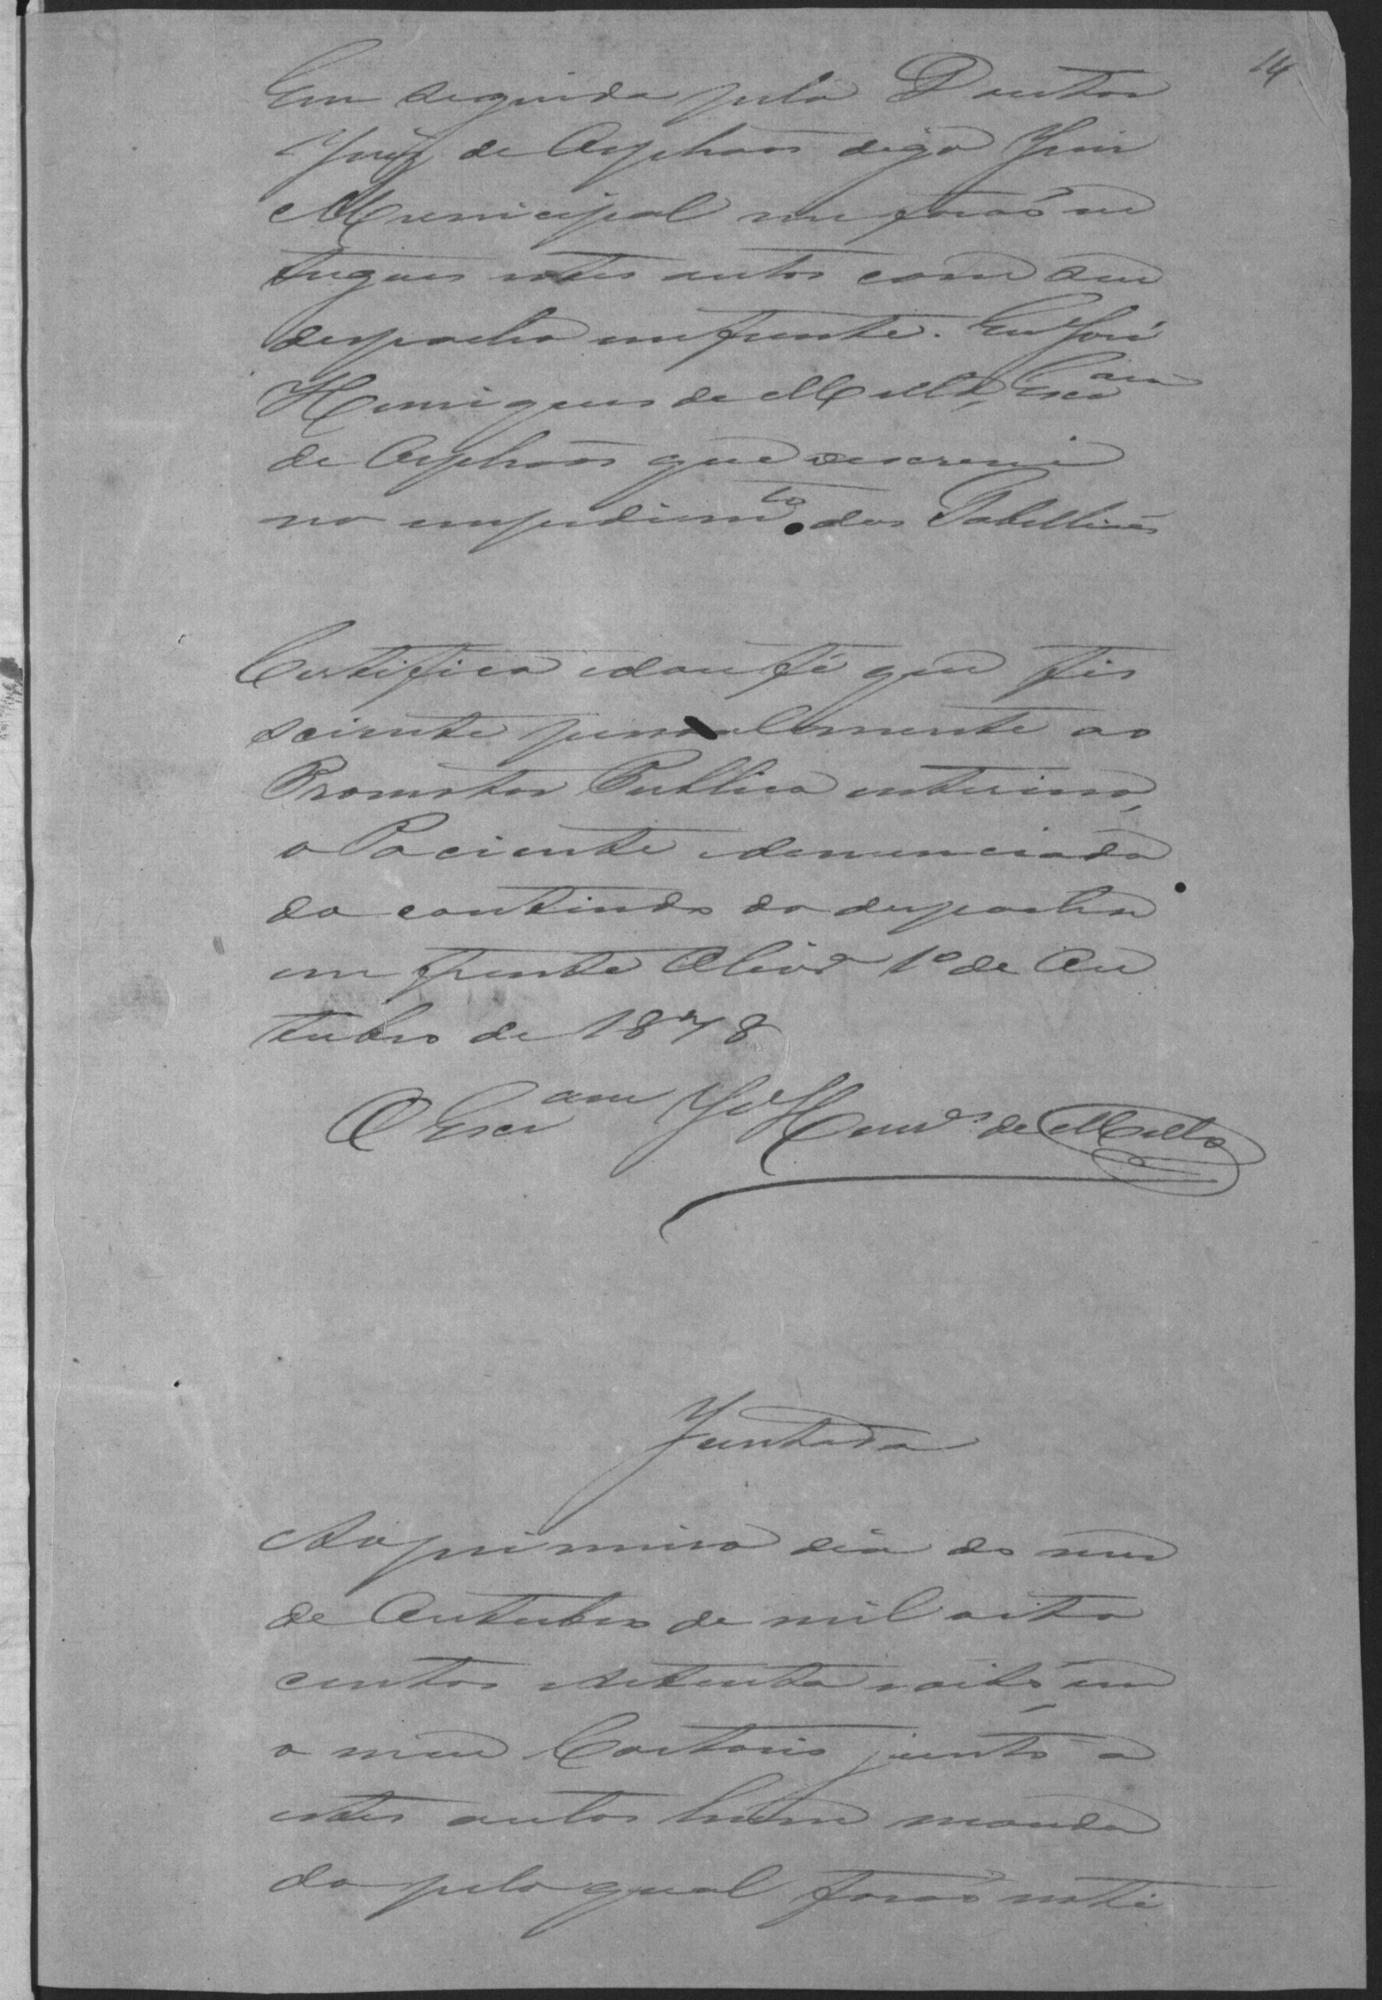 14
Em seguida pelo Doutor
Juiz de Orphaos digo Juis
Municipal me forão en
tregues estes autos com seu
despacho em frente. Eu José
Henriques de Mello, Escam
de Orphaos que escrevi
no impedimto dos Tabelliaes
Certifico e dou fé que fis
sciente pessoalmente ao
Promotor Publico interino,
o Paciente denunciado
do contiudo do despacho
em frente 1º de Ou
tubro de 1878
O Escam Jé Henrs de Mello
Juntada
Ao primeiro dia do mes
de Outubro de mil oito
centos setenta e oito, em
o meu Cartorio junto a
estes autos hum manda
do pelo qual forão noti